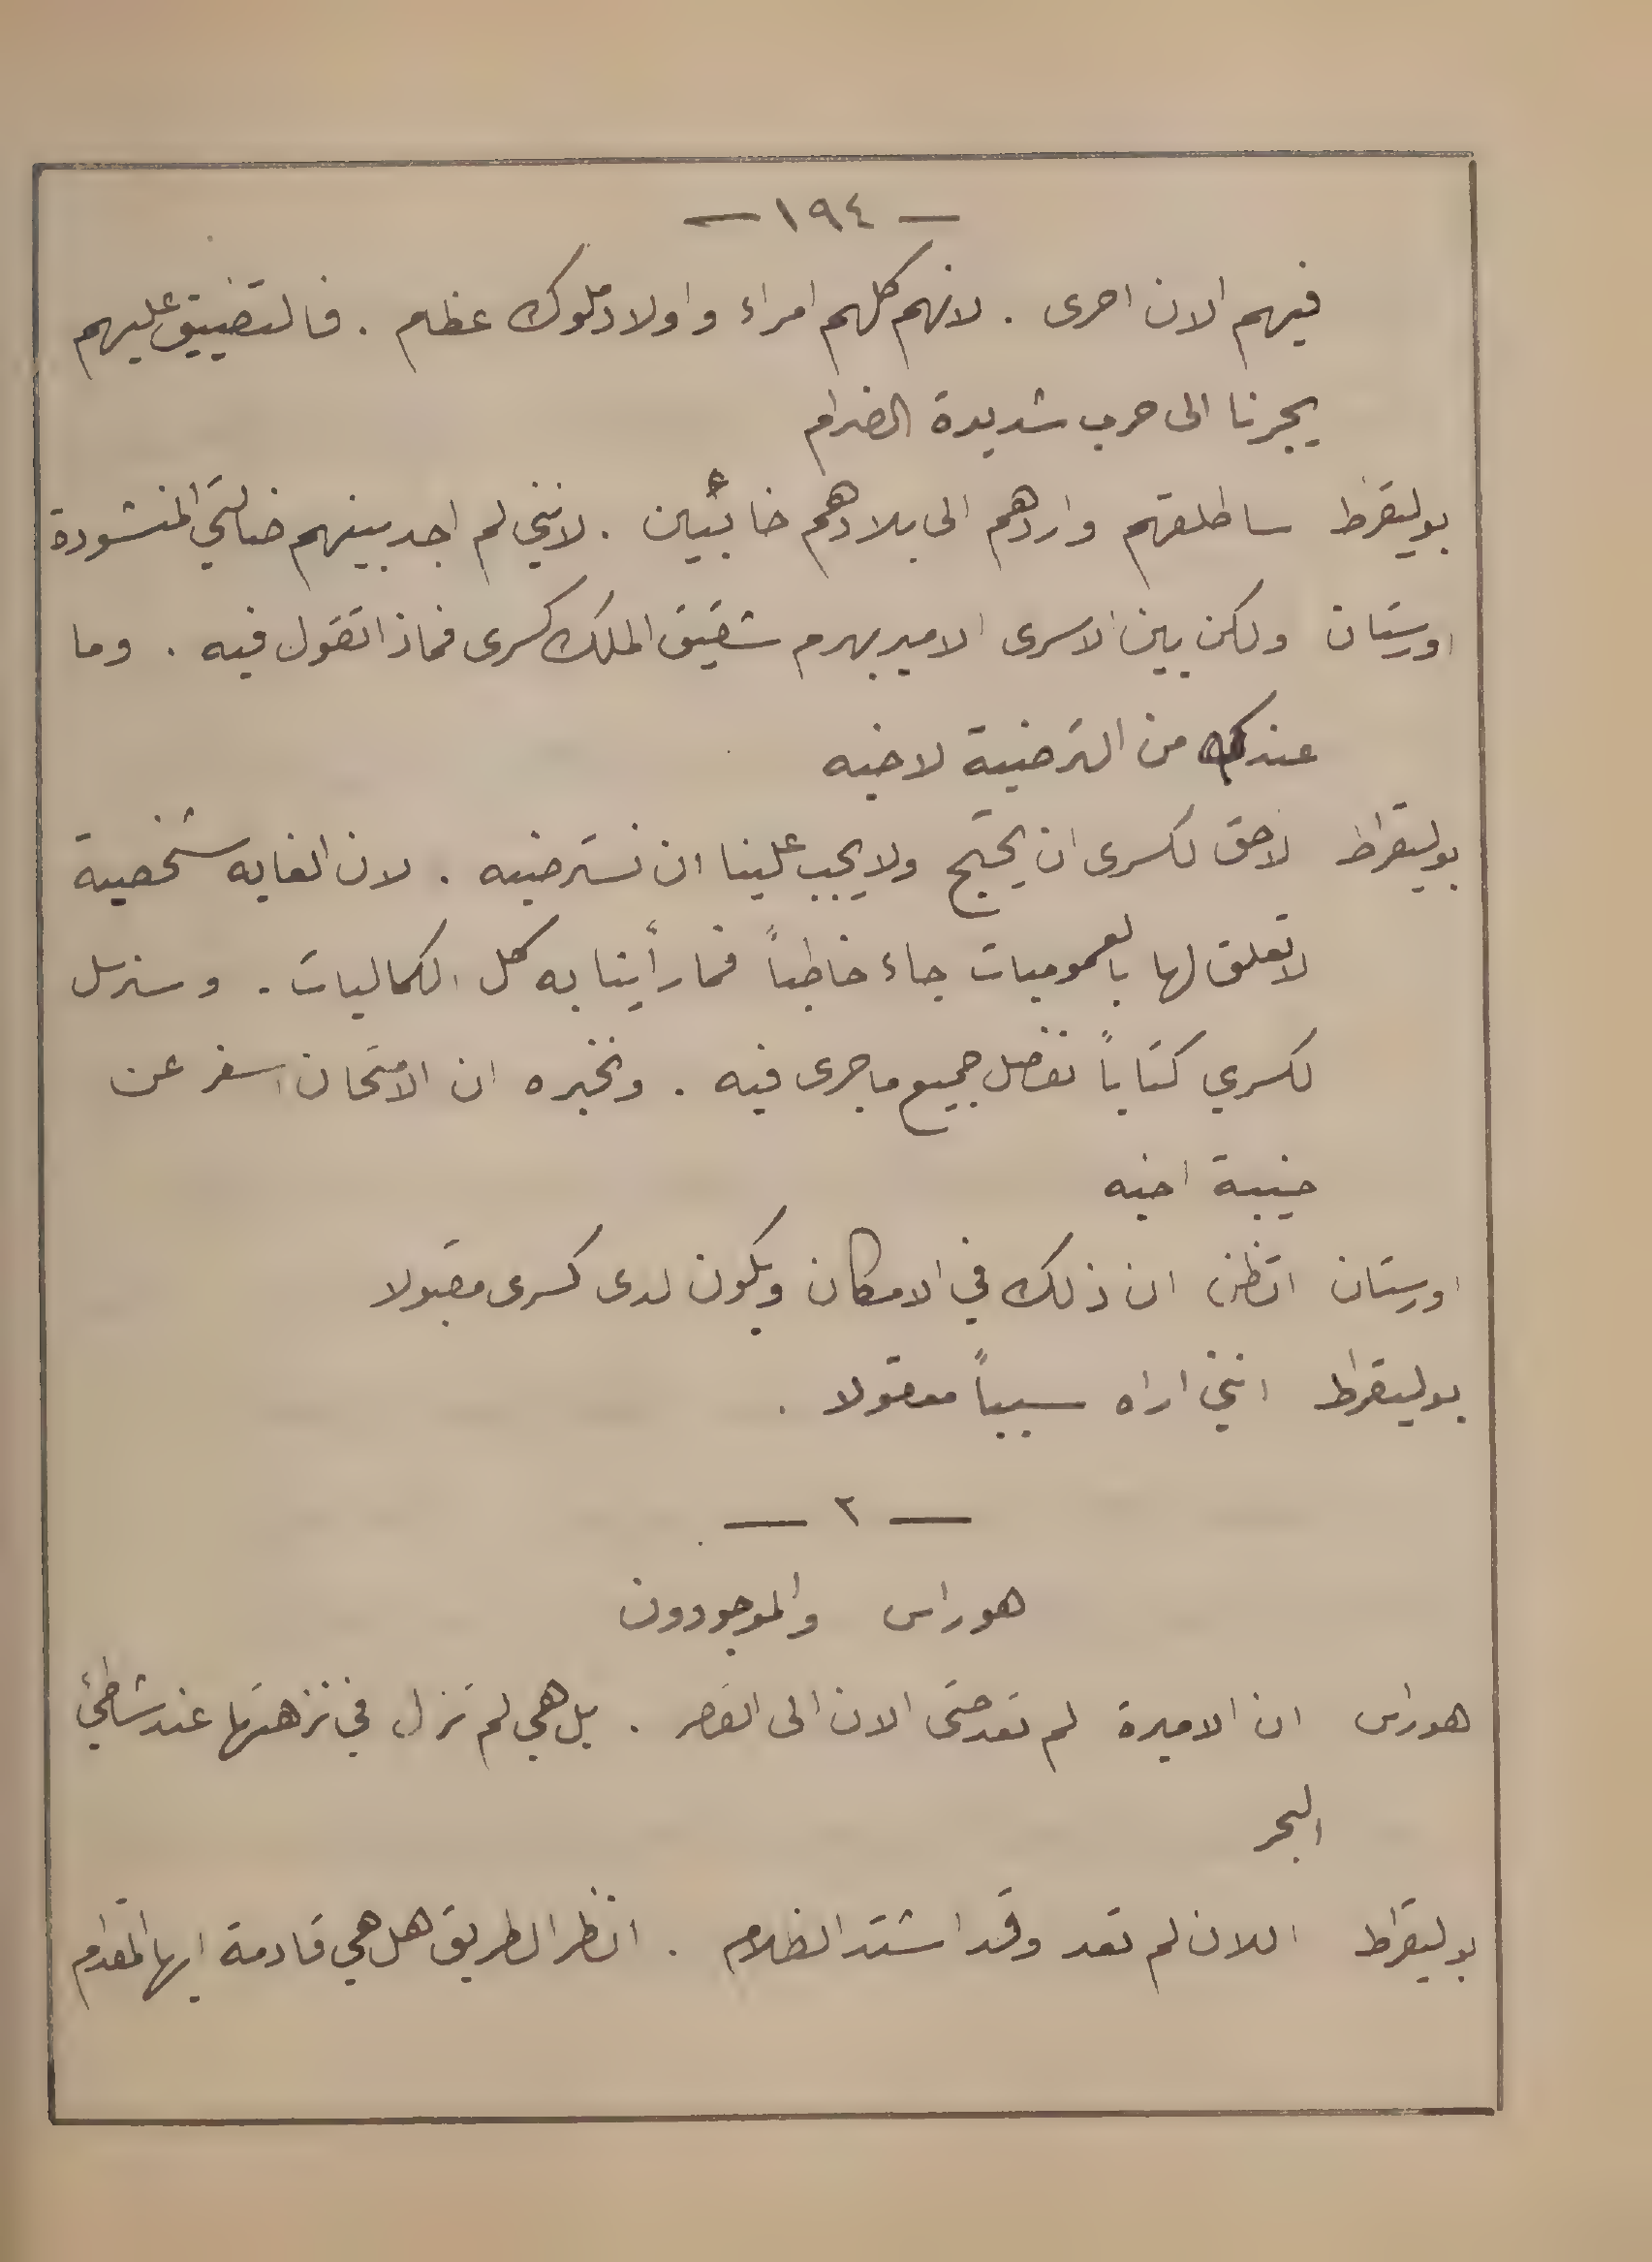 — ١٩٤ —
فيهم الان احرى . لانهم كلهم امراء واولاد ملوك عظام . فالتضييق عليهم
يجرنا الى حرب شديدة الضرام
بوليقرط ساطلقهم واردهم الى بلادهم خائبين . لانني لم اجد بينهم ضالتي المنشودة
اورستان ولكن بين الاسرى الامير بهرم شقيق الملك كسرى فماذا تقول فيه . وما
عندك من الترضية لاخيه
بوليقراط لاحق لكسرى ان يحتج ولا يجب علينا ان نسترضيه . لان الغايه شخصية
لا تعلق لها بالعموميات جاء خاطباً فما رأينا به كل الكماليات . وسنرسل
لكسري كتاباً نفصل جميع ما جرى فيه . ونخبره ان الامتحان اسفر عن
خيبة اخيه
اورستان اتظن ان ذلك في الامكان ويكون لدى كسرى مقبولا
بوليقراط انني اراه سبباً معقولا .
— ٢ —
هوراس والموجودون
هوراس ان الاميرة لم تعد حتى الان الى القصر . بل هي لم تزل في نزهتها عند شاطئ
البحر
بوليقراط اللان لم تعد وقد اشتد الظلام . انظر الطريق هل هي قادمة ايها المقدام